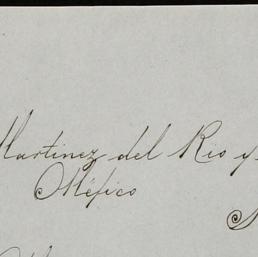 Martinez del Rio y
Méjico